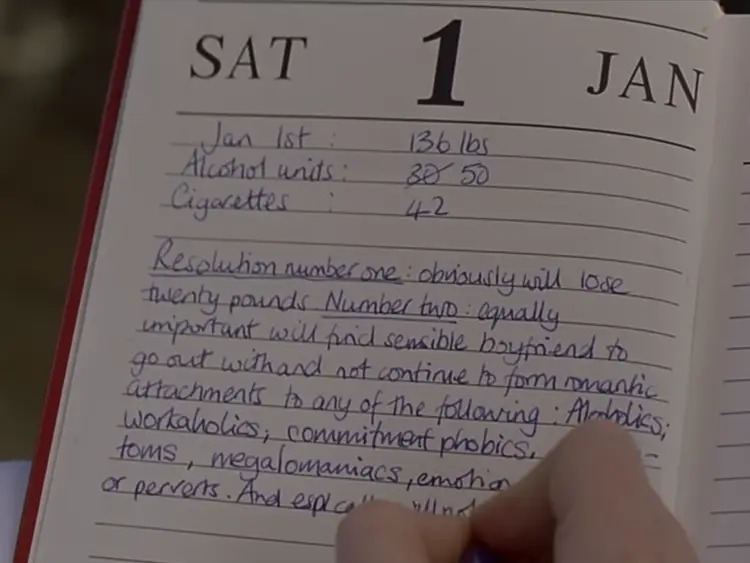 SAT 1 JAN
Jan 1st : 136 lbs
Alcohol units : 30 50
Cigarettes : 42
Resolution number one : obviously will lose
twenty pounds Number two : equally
important will find sensible boyfriend to
go out with and not continue to form romantic
attachments to any of the following : Alcoholics,
workaholics, commitment phobics,
toms, megalomaniacs, emotion
or perverts. And will not